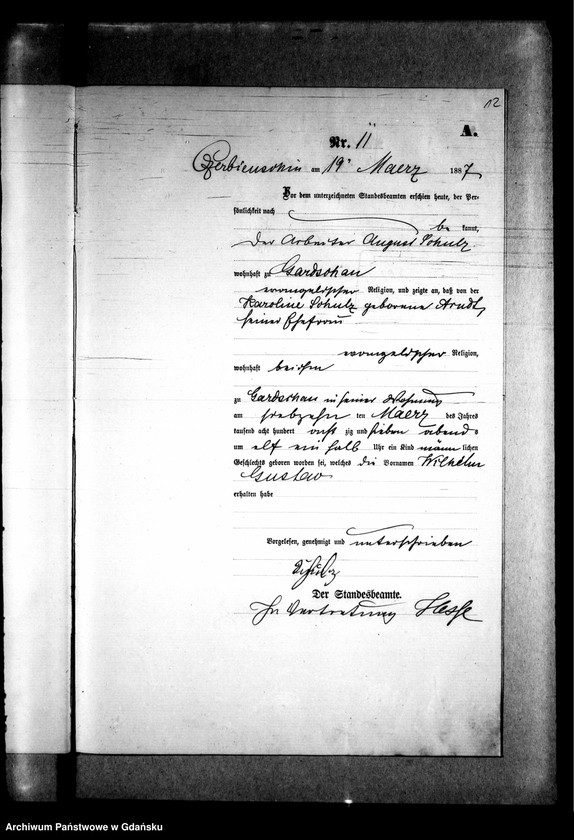 12
A.
Nr. 11
Czerbienschin am 19. Maerz 1887
Vor dem unterzeichneten Standesbeamten erschien heute, der Per-
sönlichkeit nach
be kannt,
der Arbeiter August Schulz
wohnhaft zu Gardschau
evangelischer Religion, und zeigte an, daß von der
Karoline Schulz geborene Arndt,
seiner Ehefrau
evangelischer Religion,
wohnhaft bei ihm
zu Gardschau in seiner Wohnung
am siebzehn ten Maerz des Jahres
tausend acht hundert acht zig und sieben abend s
um elf ein halb Uhr ein Kind männ lichen
Geschlechts geboren worden sei, welches die Vornamen Wilhelm
Gustav
erhalten habe
Vorgelesen, genehmigt und unterschrieben
Schulz
Der Standesbeamte.
In Vertretung Hesse
Archiwum Państwowe w Gdańsku